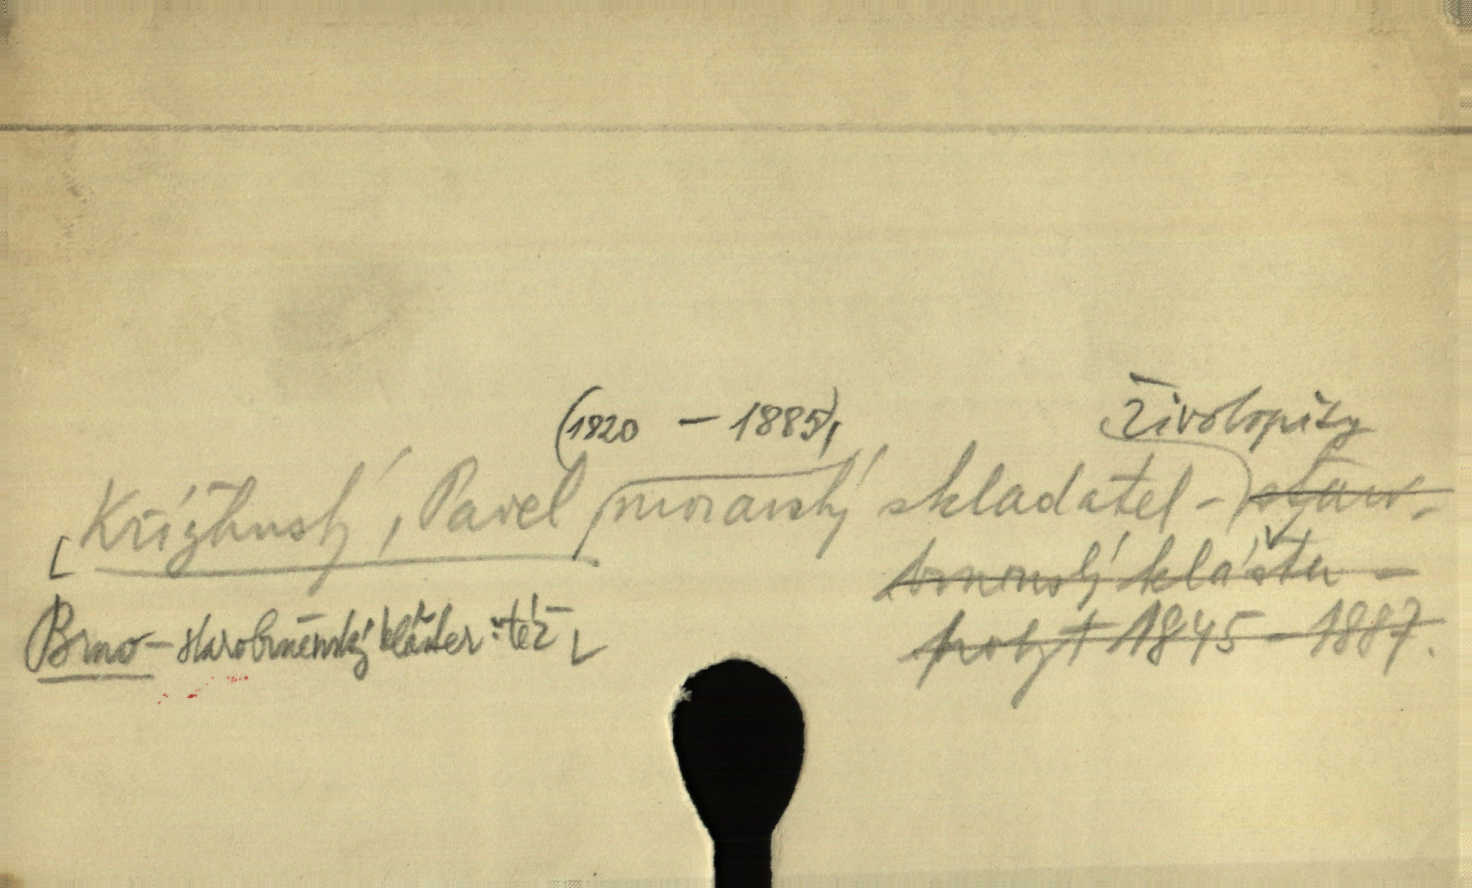 (1820 - 1885),
Životopisy
Křížkovský, Pavel moravský skladatel - staro-
brněnský klášter -
pobyt 1845 - 1887.
Brno - starobrněnský klášter: též